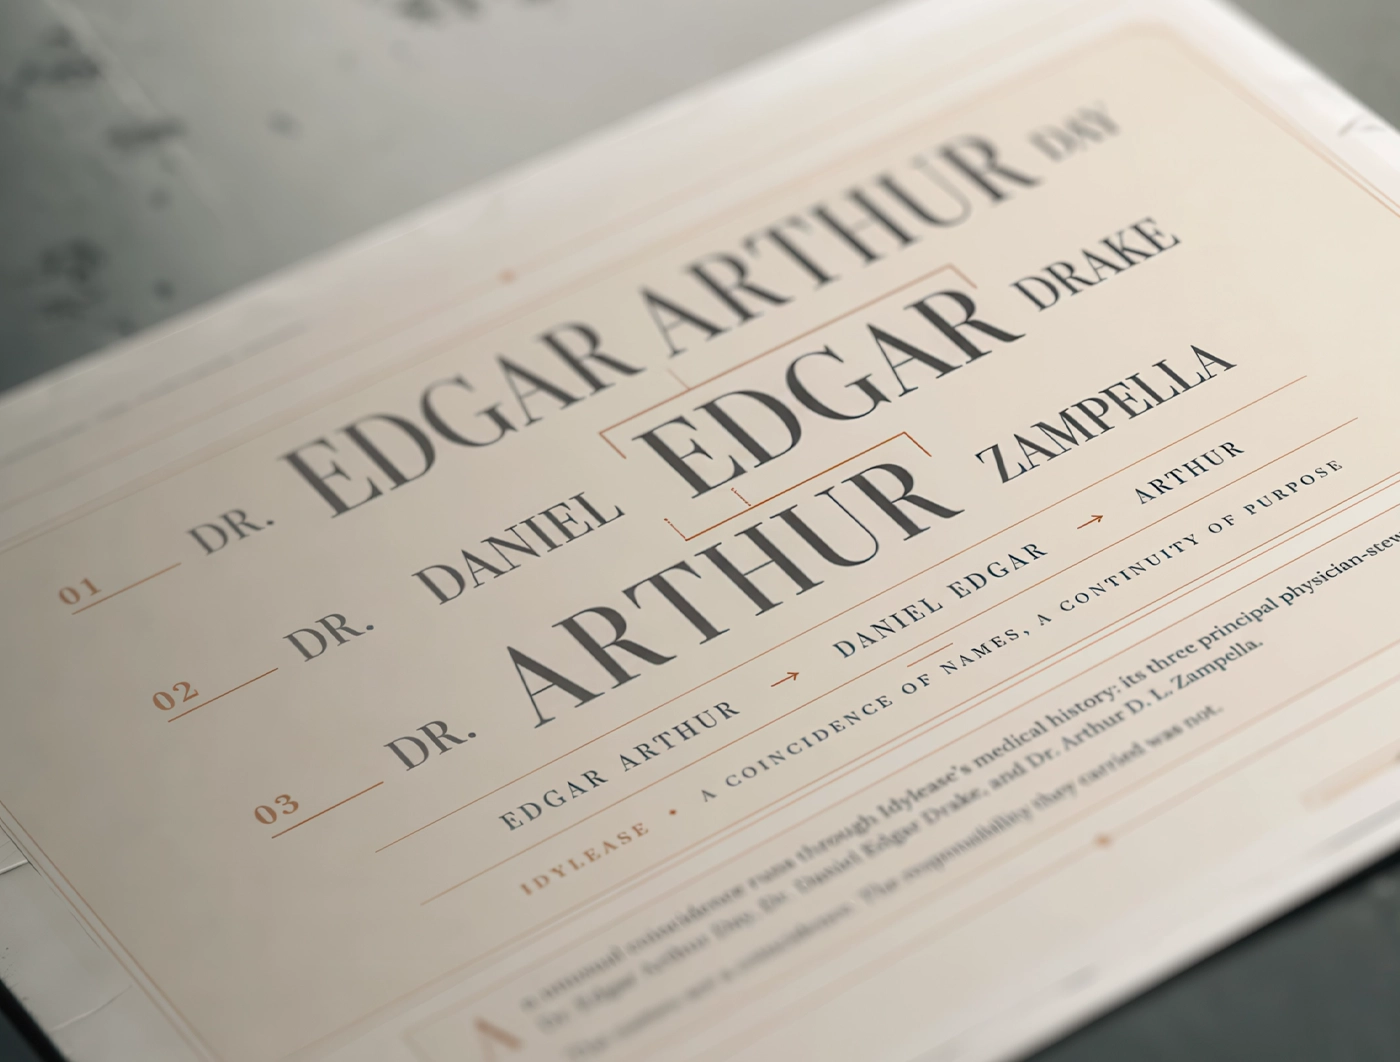 01 DR. EDGAR ARTHUR DAY
02 DR. DANIEL EDGAR DRAKE
03 DR. ARTHUR ZAMPELLA
EDGAR ARTHUR → DANIEL EDGAR → ARTHUR
IDYLEASE • A COINCIDENCE OF NAMES, A CONTINUITY OF PURPOSE
A unusual coincidence runs through Idylease's medical history: its three principal
Dr. Edgar Arthur Day, Dr. Daniel Edgar Drake, and Dr. Arthur D. L. Zampella.
The names are a coincidence. The responsibility they carried was not.